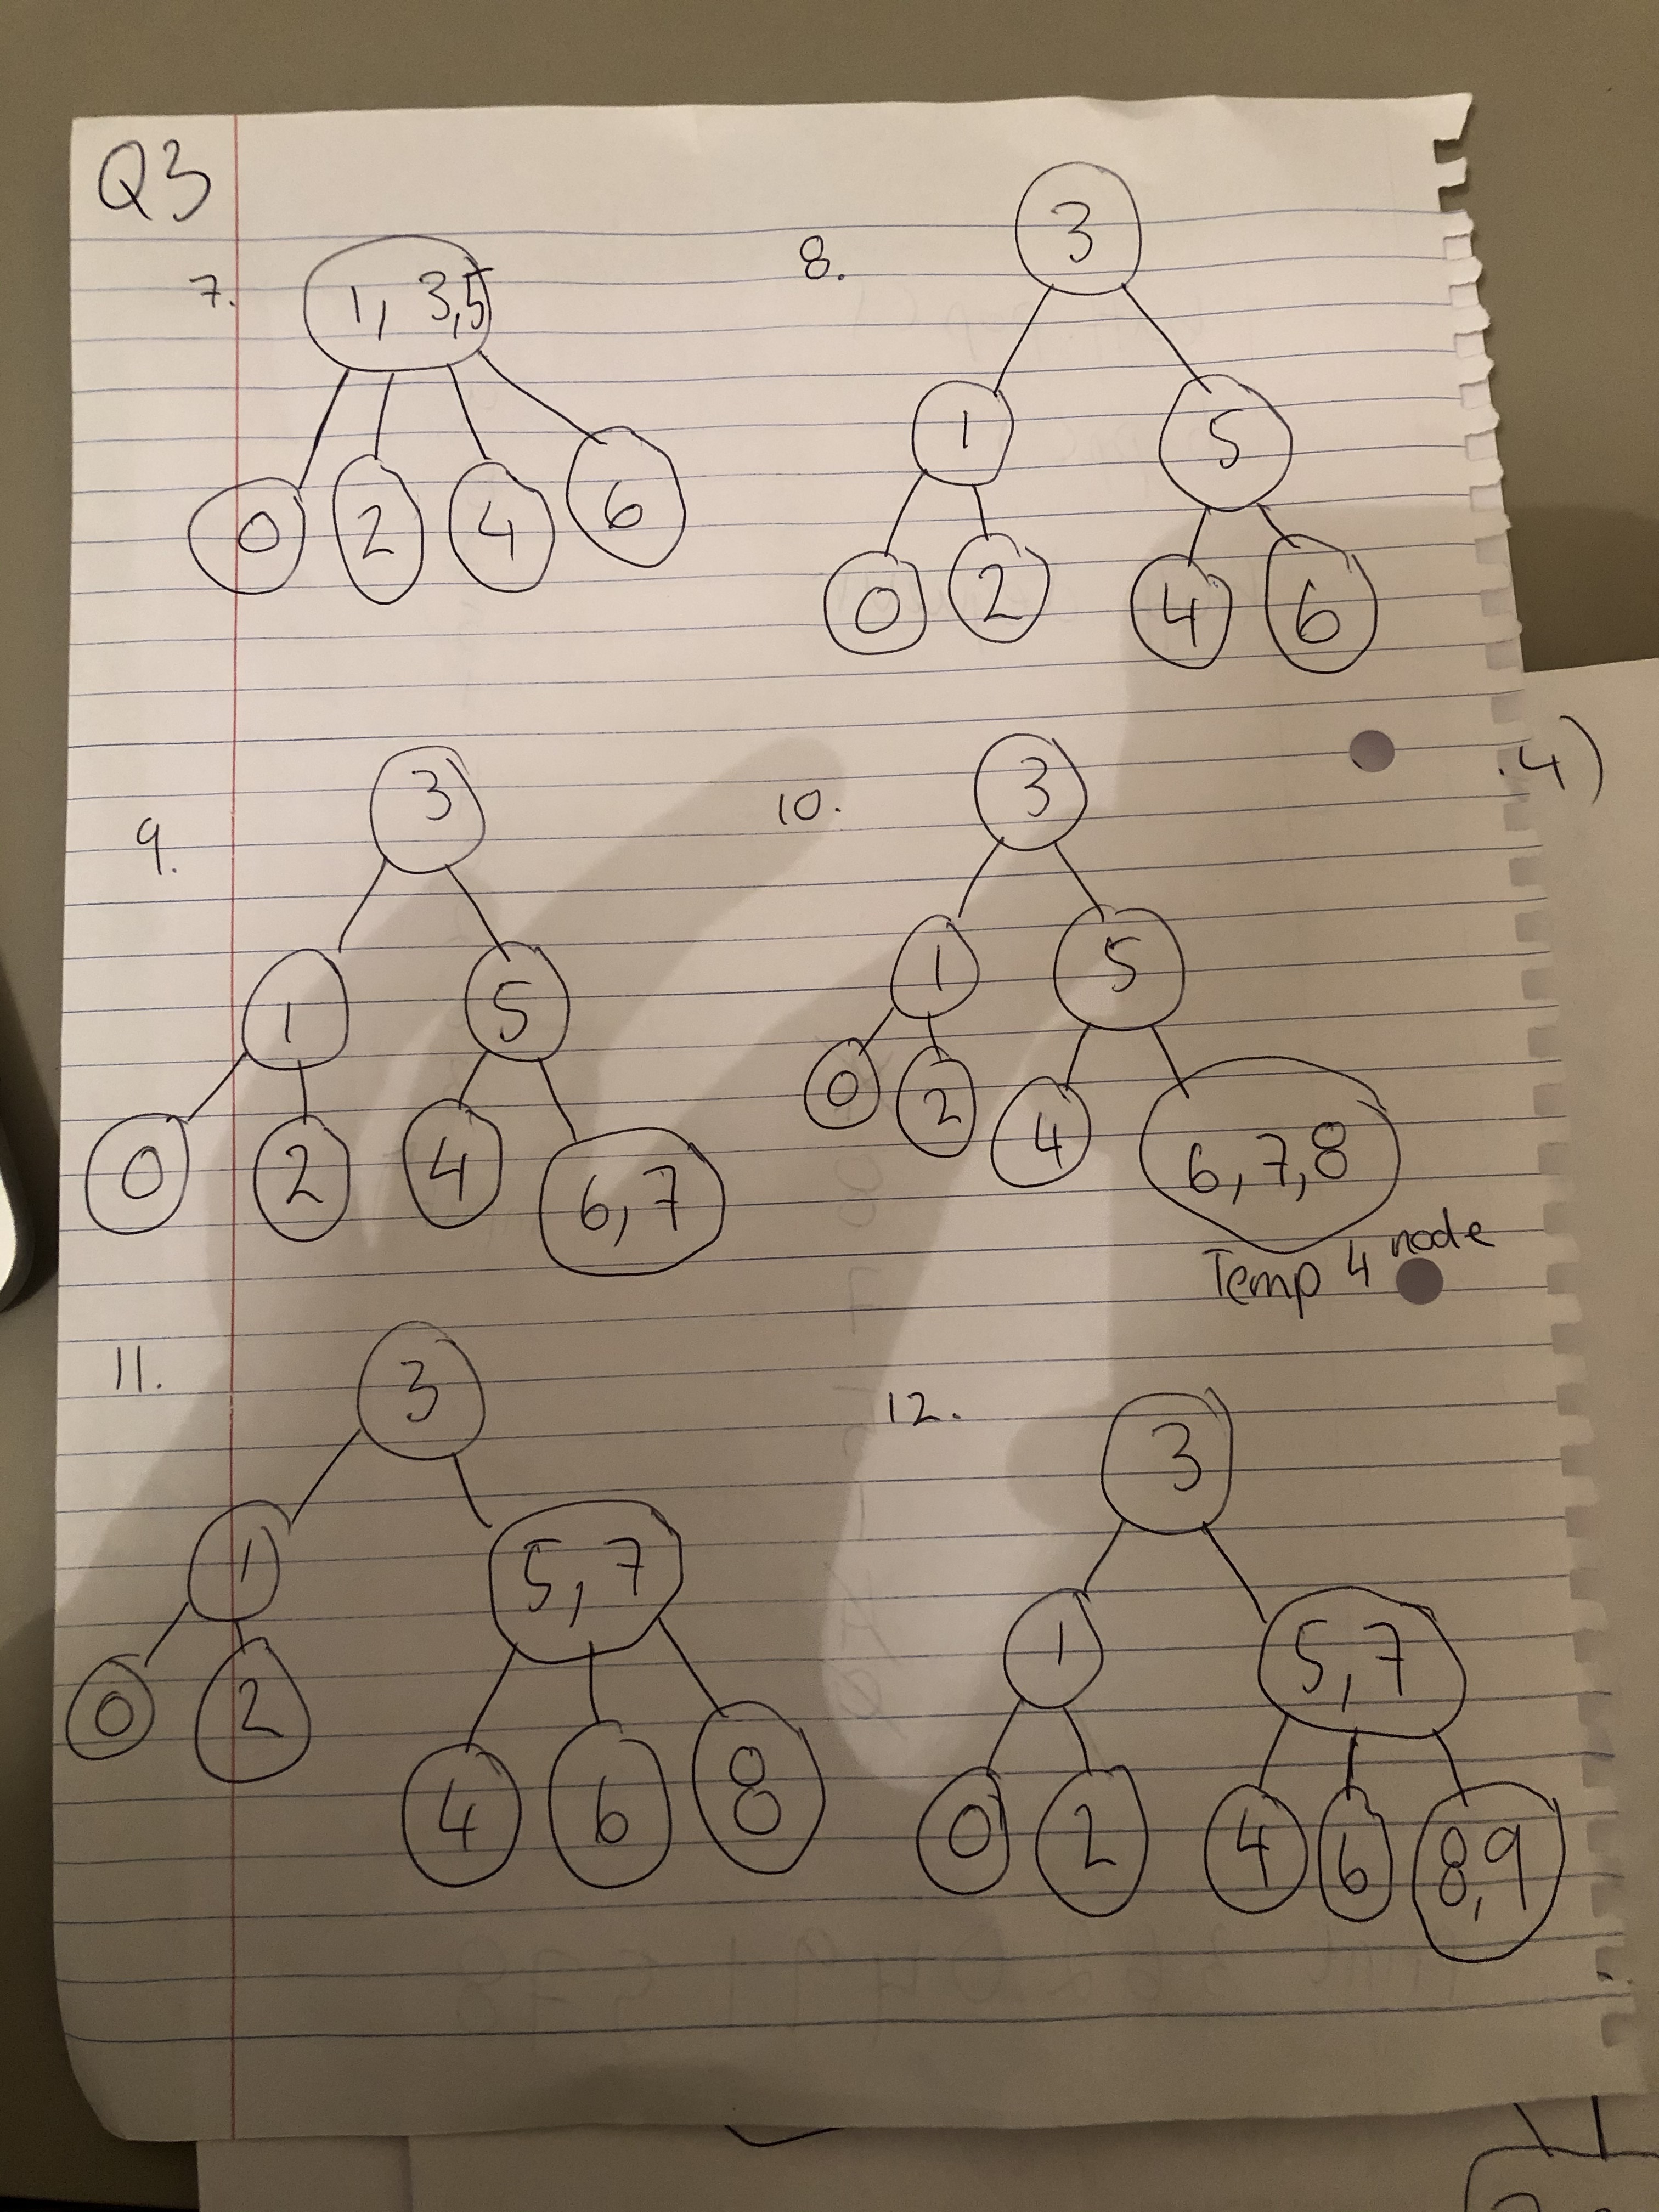 Q3
7.
1, 3,5
0 2 4 6
8.
3
1 5
0 2 4 6
9.
3
1 5
0 2 4 6,7
10.
3
1 5
0 2 4 6,7,8
Temp 4 node
.4)
11.
3
1 5,7
0 2 4 6 8
12.
3
1 5,7
0 2 4 6 8,9